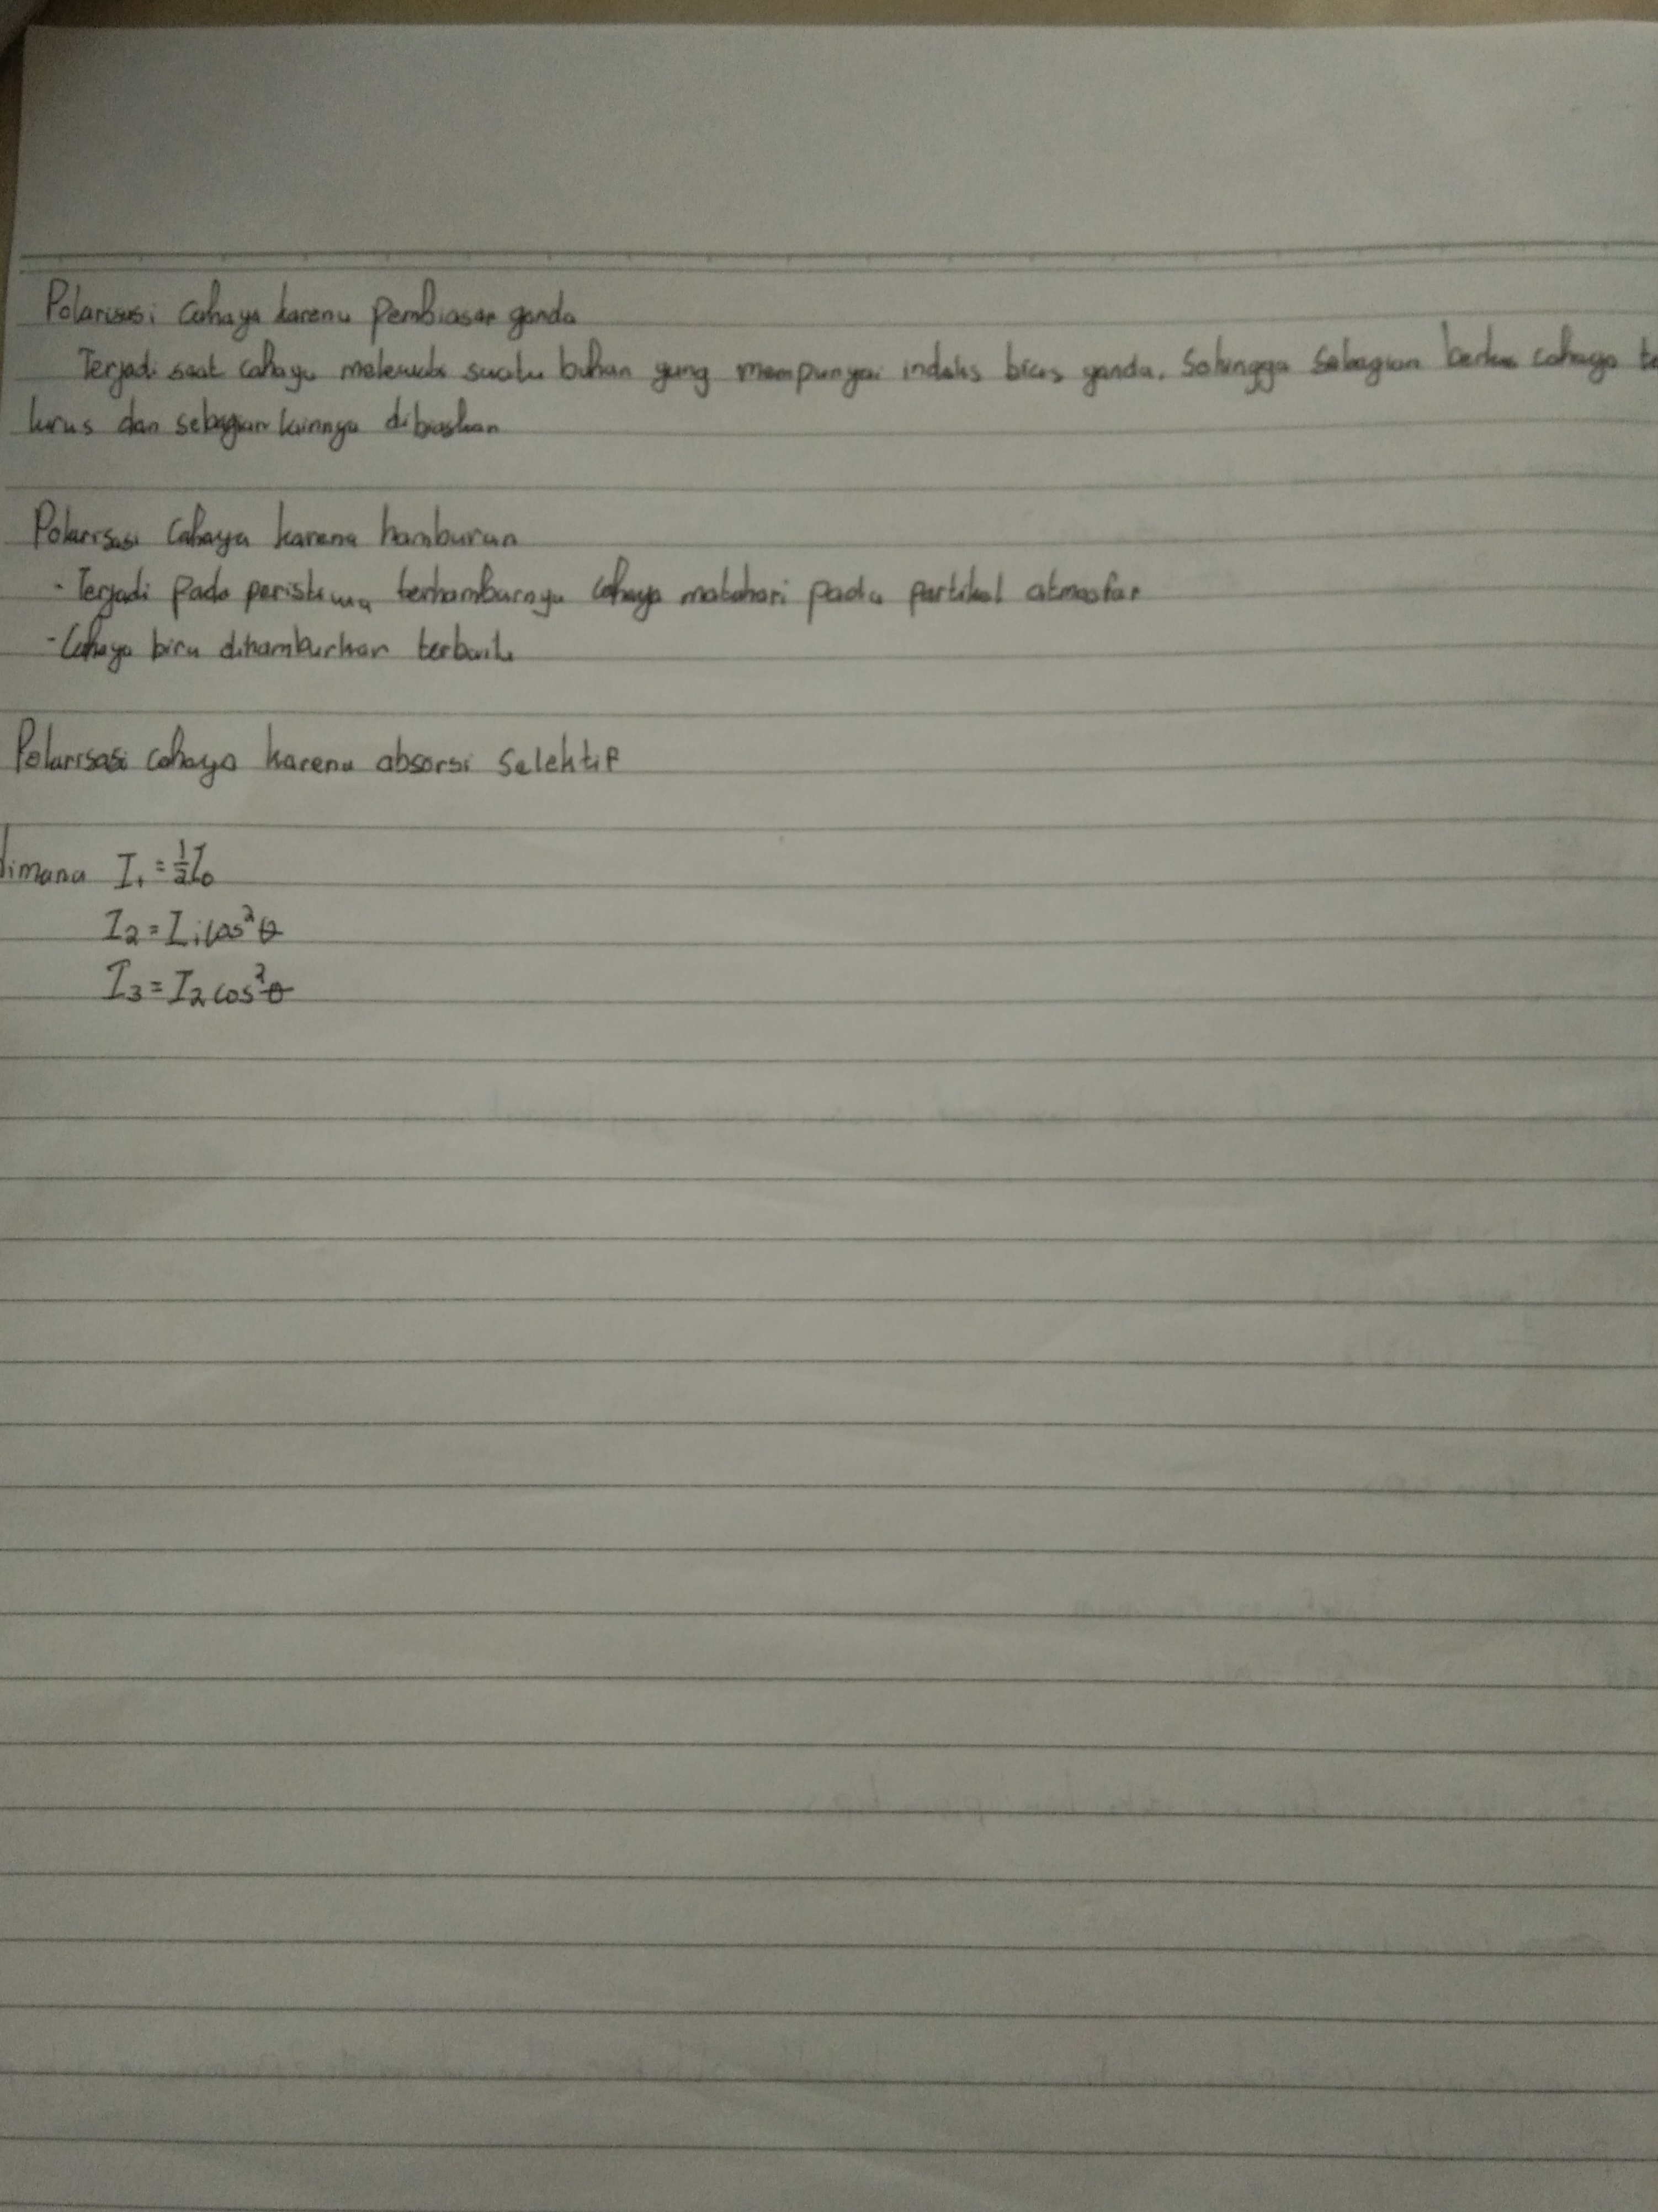 Polarisasi Cahaya karena Pembiasan ganda
Terjadi saat cahaya melewati suatu bahan yang mempunyai indeks bias ganda. Sehingga Sebagian berkas cahaya
lurus dan sebagian lainnya dibiaskan
Polarisasi Cahaya karena hamburan
- Terjadi Pada peristiwa terhamburnya Cahaya matahari pada partikel atmosfer
- Cahaya biru dihamburkan terbaik
Polarisasi cahaya karena absorsi Selektif
dimana I₁ = ½I₀
I₂ = I₁ cos²θ
I₃ = I₂ cos²θ